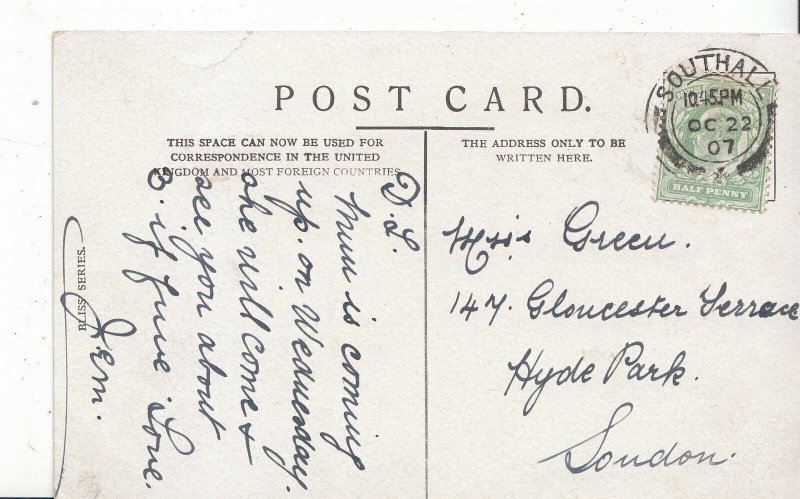 POST CARD.
THIS SPACE CAN NOW BE USED FOR
CORRESPONDENCE IN THE UNITED
KINGDOM AND MOST FOREIGN COUNTRIES
THE ADDRESS ONLY TO BE
WRITTEN HERE.
SOUTHALL
10.45PM
OC 22
07
HALF PENNY
D. L.
Mum is coming
up. on Wednesday.
she will come &
see you about
3. if fine. Love.
Jem.
BLISS SERIES.
Miss Green.
147. Gloucester Terrace
Hyde Park.
London.